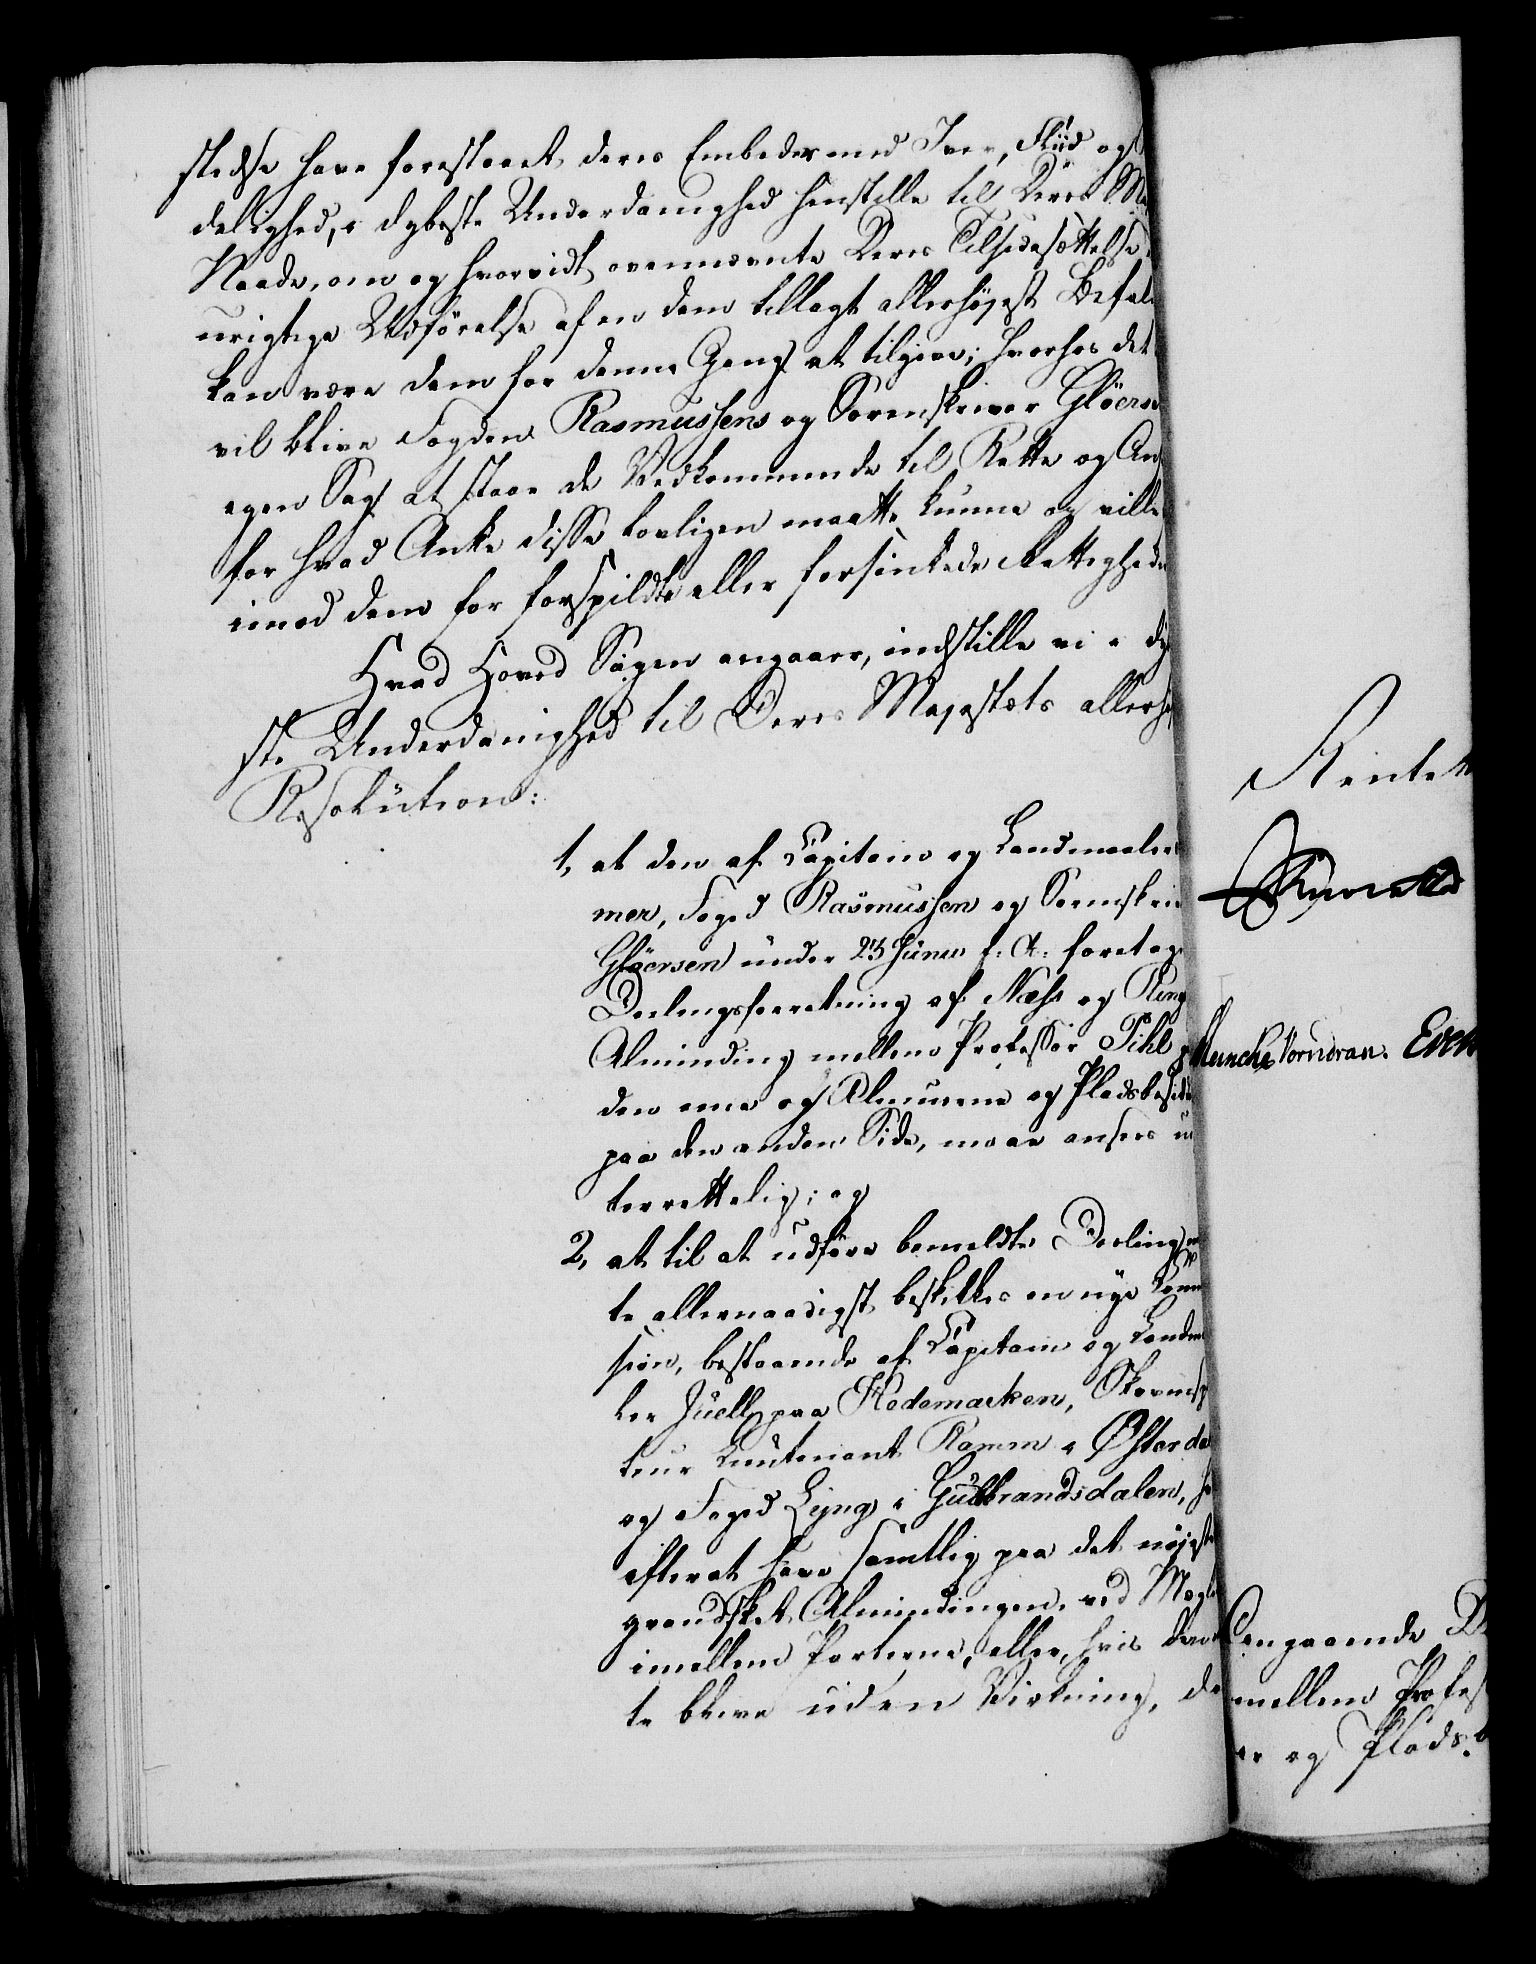 stedse have forestaaet deres Embeder med Iver, Fliid og
delighed, i dybeste Underdanighed henstille til Deres Ma
Naade, om og hvorvidt ovennævnte Deres Tilsidesættelse
urigtige Udførelse af en dem tillagt allerhøjest Befal
kan være dem for denne Gang at tilgive; hvorhos det
vil blive Fogden Rasmussens og Sorenskriver Gløerse
egen Sag at staae de Vedkommende til Rette og An
for hvad Anke disse lovligen maatte kunne og ville
imod dem for forspildte eller forsinkede Rettighede
Hvad Hoved Sagen angaaer, indstille vi i dy
ste Underdanighed til Deres Majestæts allerhø
Resolution:
1, at den af Capitain og Landmaaler
mer, Foged Rasmussen og Sorenskri
Gløersen under 25 Junii f: A: foretag
Deelingsforretning af Næss og Ring
Alminding mellem Professor Pihl p
den ene og Almuene og Pladsbesid
paa den anden Side, maae ansees u
terrettelig; og
2, at til at udføre bemeldte Deeling m
te allernaadigst beskikkes en nye Com
sion, bestaaende af Capitain og Landm
ler Juell paa Hedemarken, Skovinsp
teur Lieutenant Ramm i Østerda
og Foged Lyng i Gulbrandsdalen, h
efter at have samtlig paa det nøjeste
grandsket Almindingen, ved Mægl
imellem Parterne, eller, hvis den
te blive uden Virkning, de
Rente
Meincke Vornoran.
angaaende D
mellem Profes
er og Plads.